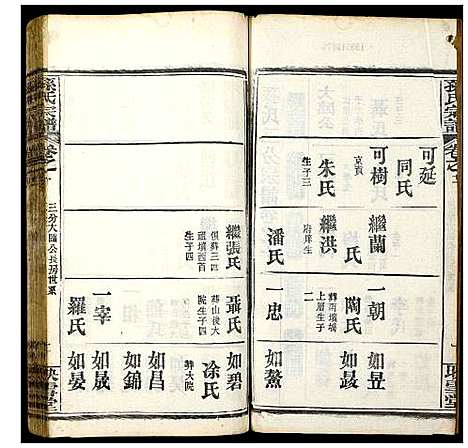 孫氏宗譜
卷之一
可延
同氏
可樹
貢
朱氏
生子三
繼蘭
氏
繼洪
府庠生
潘氏
一朝
陶氏
上眉生子
一忠
如昱
如晸
如鰲
映雪堂
繼張氏
俱葬三四
生子四
聶氏
葬山後大
院生子四
一宰
羅氏
如碧
凃氏
葬大院
如昌
如錦
如晟
如晏
孫氏宗譜
卷之一
三分大𨤲公長房世系
映雪堂